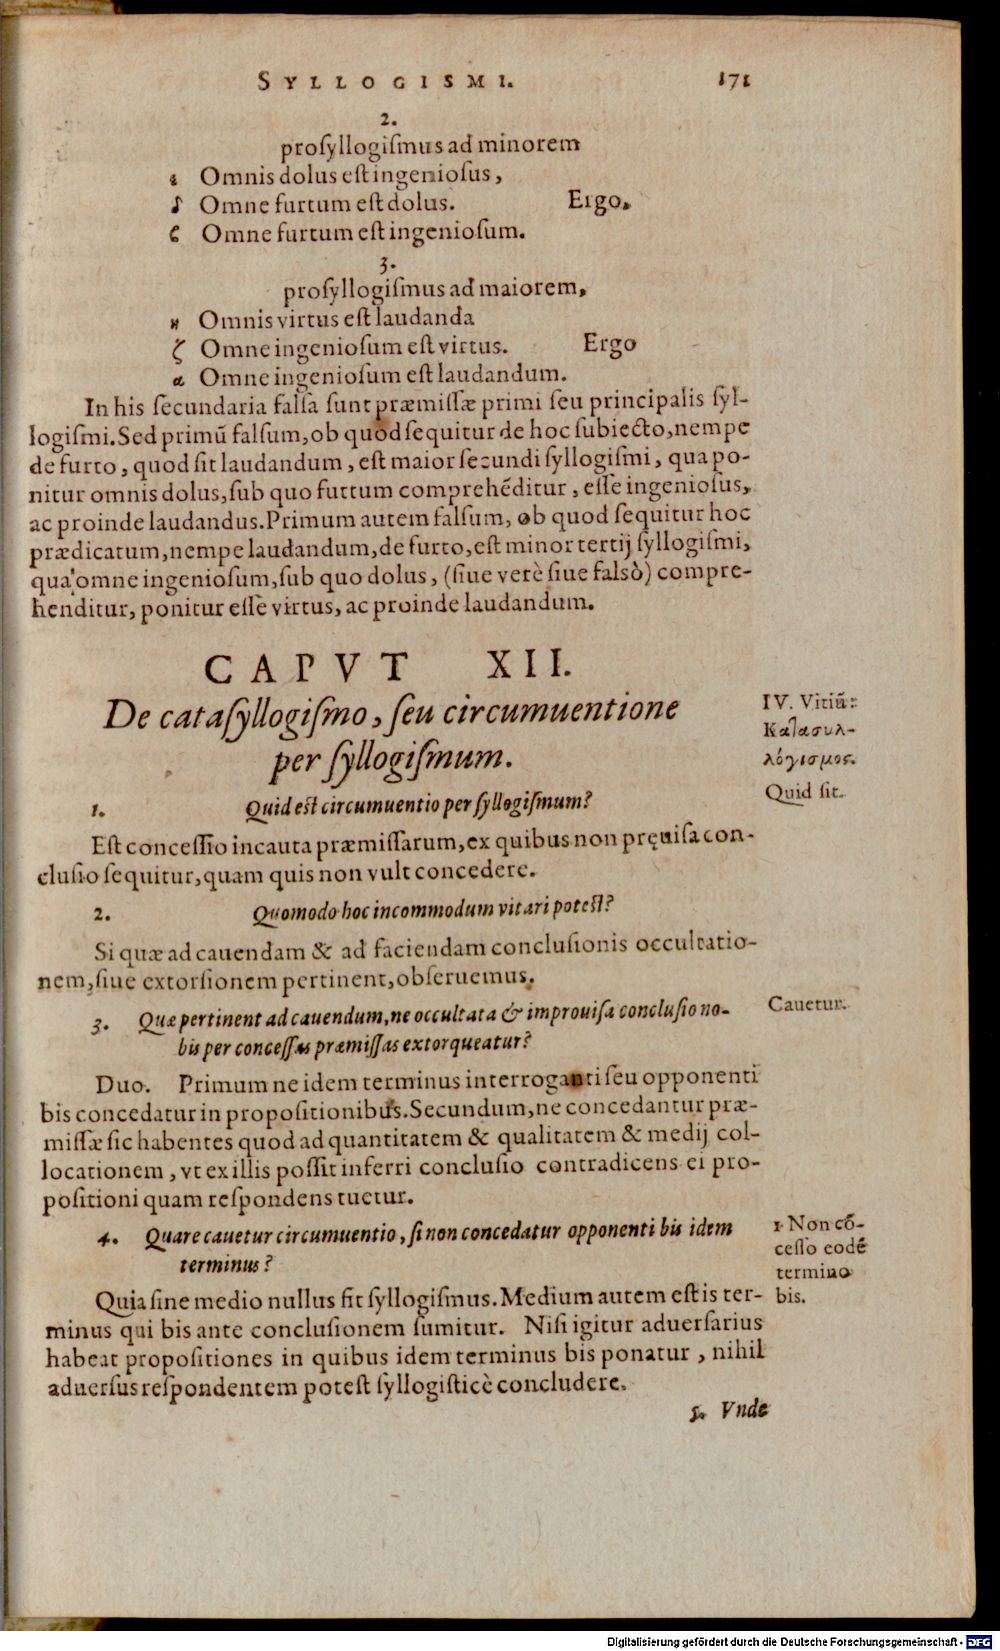 SYLLOGISMI. 171
2.
proſyllogiſmus ad minorem
Omnis dolus eſt ingenioſus,
δ Omne furtum eſt dolus. Ergo,
ϐ Omne furtum eſt ingenioſum.
3.
proſyllogiſmus ad maiorem,
Omnis virtus eſt laudanda
ζ Omne ingenioſum eſt virtus. Ergo
α Omne ingenioſum eſt laudandum.
In his ſecundaria falſa ſunt præmiſſæ primi ſeu principalis ſyl-
logiſmi. Sed primũ falſum, ob quod ſequitur de hoc ſubiecto, nempe
de furto, quod ſit laudandum, eſt maior ſecundi ſyllogiſmi, qua po-
nitur omnis dolus, ſub quo furtum comprehẽditur, eſſe ingenioſus,
ac proinde laudandus. Primum autem falſum, ob quod ſequitur hoc
prædicatum, nempe laudandum, de furto, eſt minor tertij ſyllogiſmi,
qua omne ingenioſum, ſub quo dolus, (ſiue verè ſiue falsò) compre-
henditur, ponitur eſſe virtus, ac proinde laudandum.
CAPVT XII.
De cataſyllogiſmo, ſeu circumuentione
per ſyllogiſmum.
IV. Vitiũ:
Κατασυλ-
λόγισμος.
Quid ſit.
1. Quid eſt circumuentio per ſyllogiſmum?
Eſt conceſſio incauta præmiſſarum, ex quibus non pręuiſa con-
cluſio ſequitur, quam quis non vult concedere.
2. Quomodo hoc incommodum vitari poteſt?
Si quæ ad cauendam & ad faciendam concluſionis occultatio-
nem, ſiue extorſionem pertinent, obſeruemus.
3. Quæ pertinent ad cauendum, ne occultata & improuiſa concluſio no-
bis per conceſſas præmiſſas extorqueatur?
Cauetur.
Duo. Primum ne idem terminus interroganti ſeu opponenti
bis concedatur in propoſitionibus. Secundum, ne concedantur præ-
miſſæ ſic habentes quod ad quantitatem & qualitatem & medij col-
locationem, vt ex illis poſſit inferri concluſio contradicens ei pro-
poſitioni quam reſpondens tuetur.
4. Quare cauetur circumuentio, ſi non concedatur opponenti bis idem
terminus?
1 Non cõ-
ceſſo eodẽ
termino
bis.
Quia ſine medio nullus fit ſyllogiſmus. Medium autem eſt is ter-
minus qui bis ante concluſionem ſumitur. Niſi igitur aduerſarius
habeat propoſitiones in quibus idem terminus bis ponatur, nihil
aduerſus reſpondentem poteſt ſyllogiſticè concludere.
5. Vnde
Digitalisierung gefördert durch die Deutsche Forschungsgemeinschaft - DFG